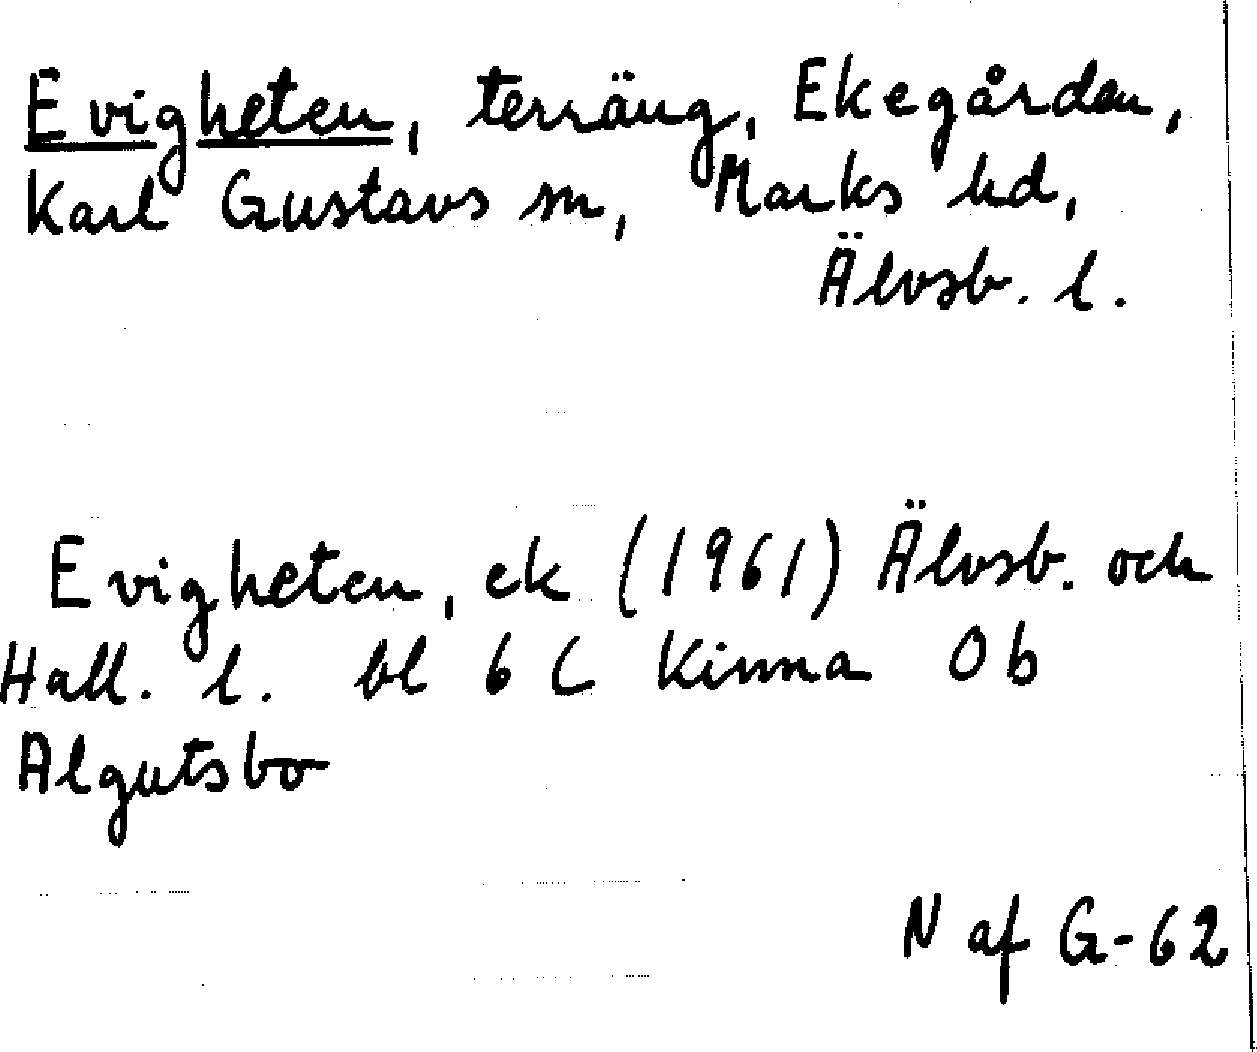 Evigheten, terräng, Ekegården,
Karl Gustavs sn, Marks hd,
Älvsb. l.
Evigheten, ek (1961) Älvsb. och
Hall. l. bl 6 C Kinna 0 b
Algutsbo
N af G-62